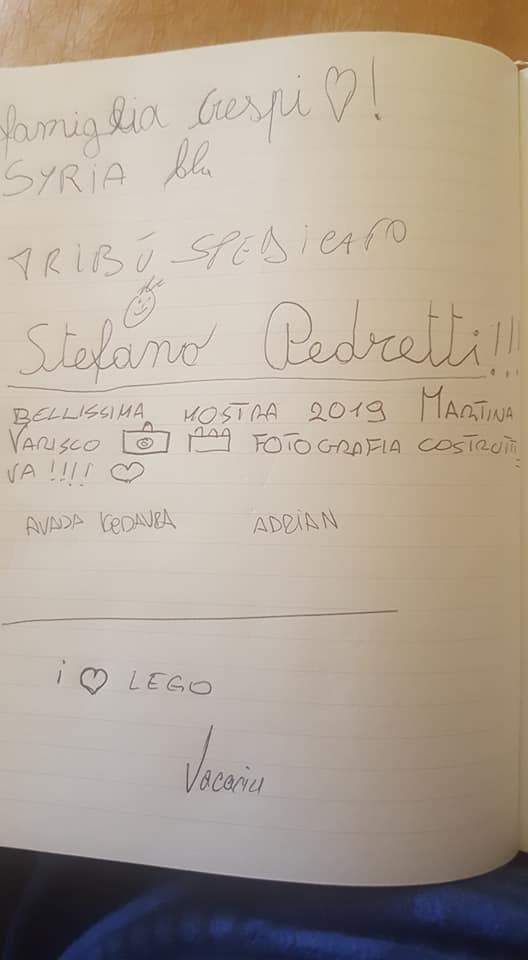 famiglia Crespi ♡!
SYRIA blu
TRIBÙ SPEDICATO
Stefano Pedretti!!!
BELLISSIMA MOSTRA 2019 MARTINA
VARISCO FOTOGRAFIA COSTRUTTI
VA !!!! ♡
AVADA KEDAVRA ADRIAN
i ♡ LEGO
Vacariu